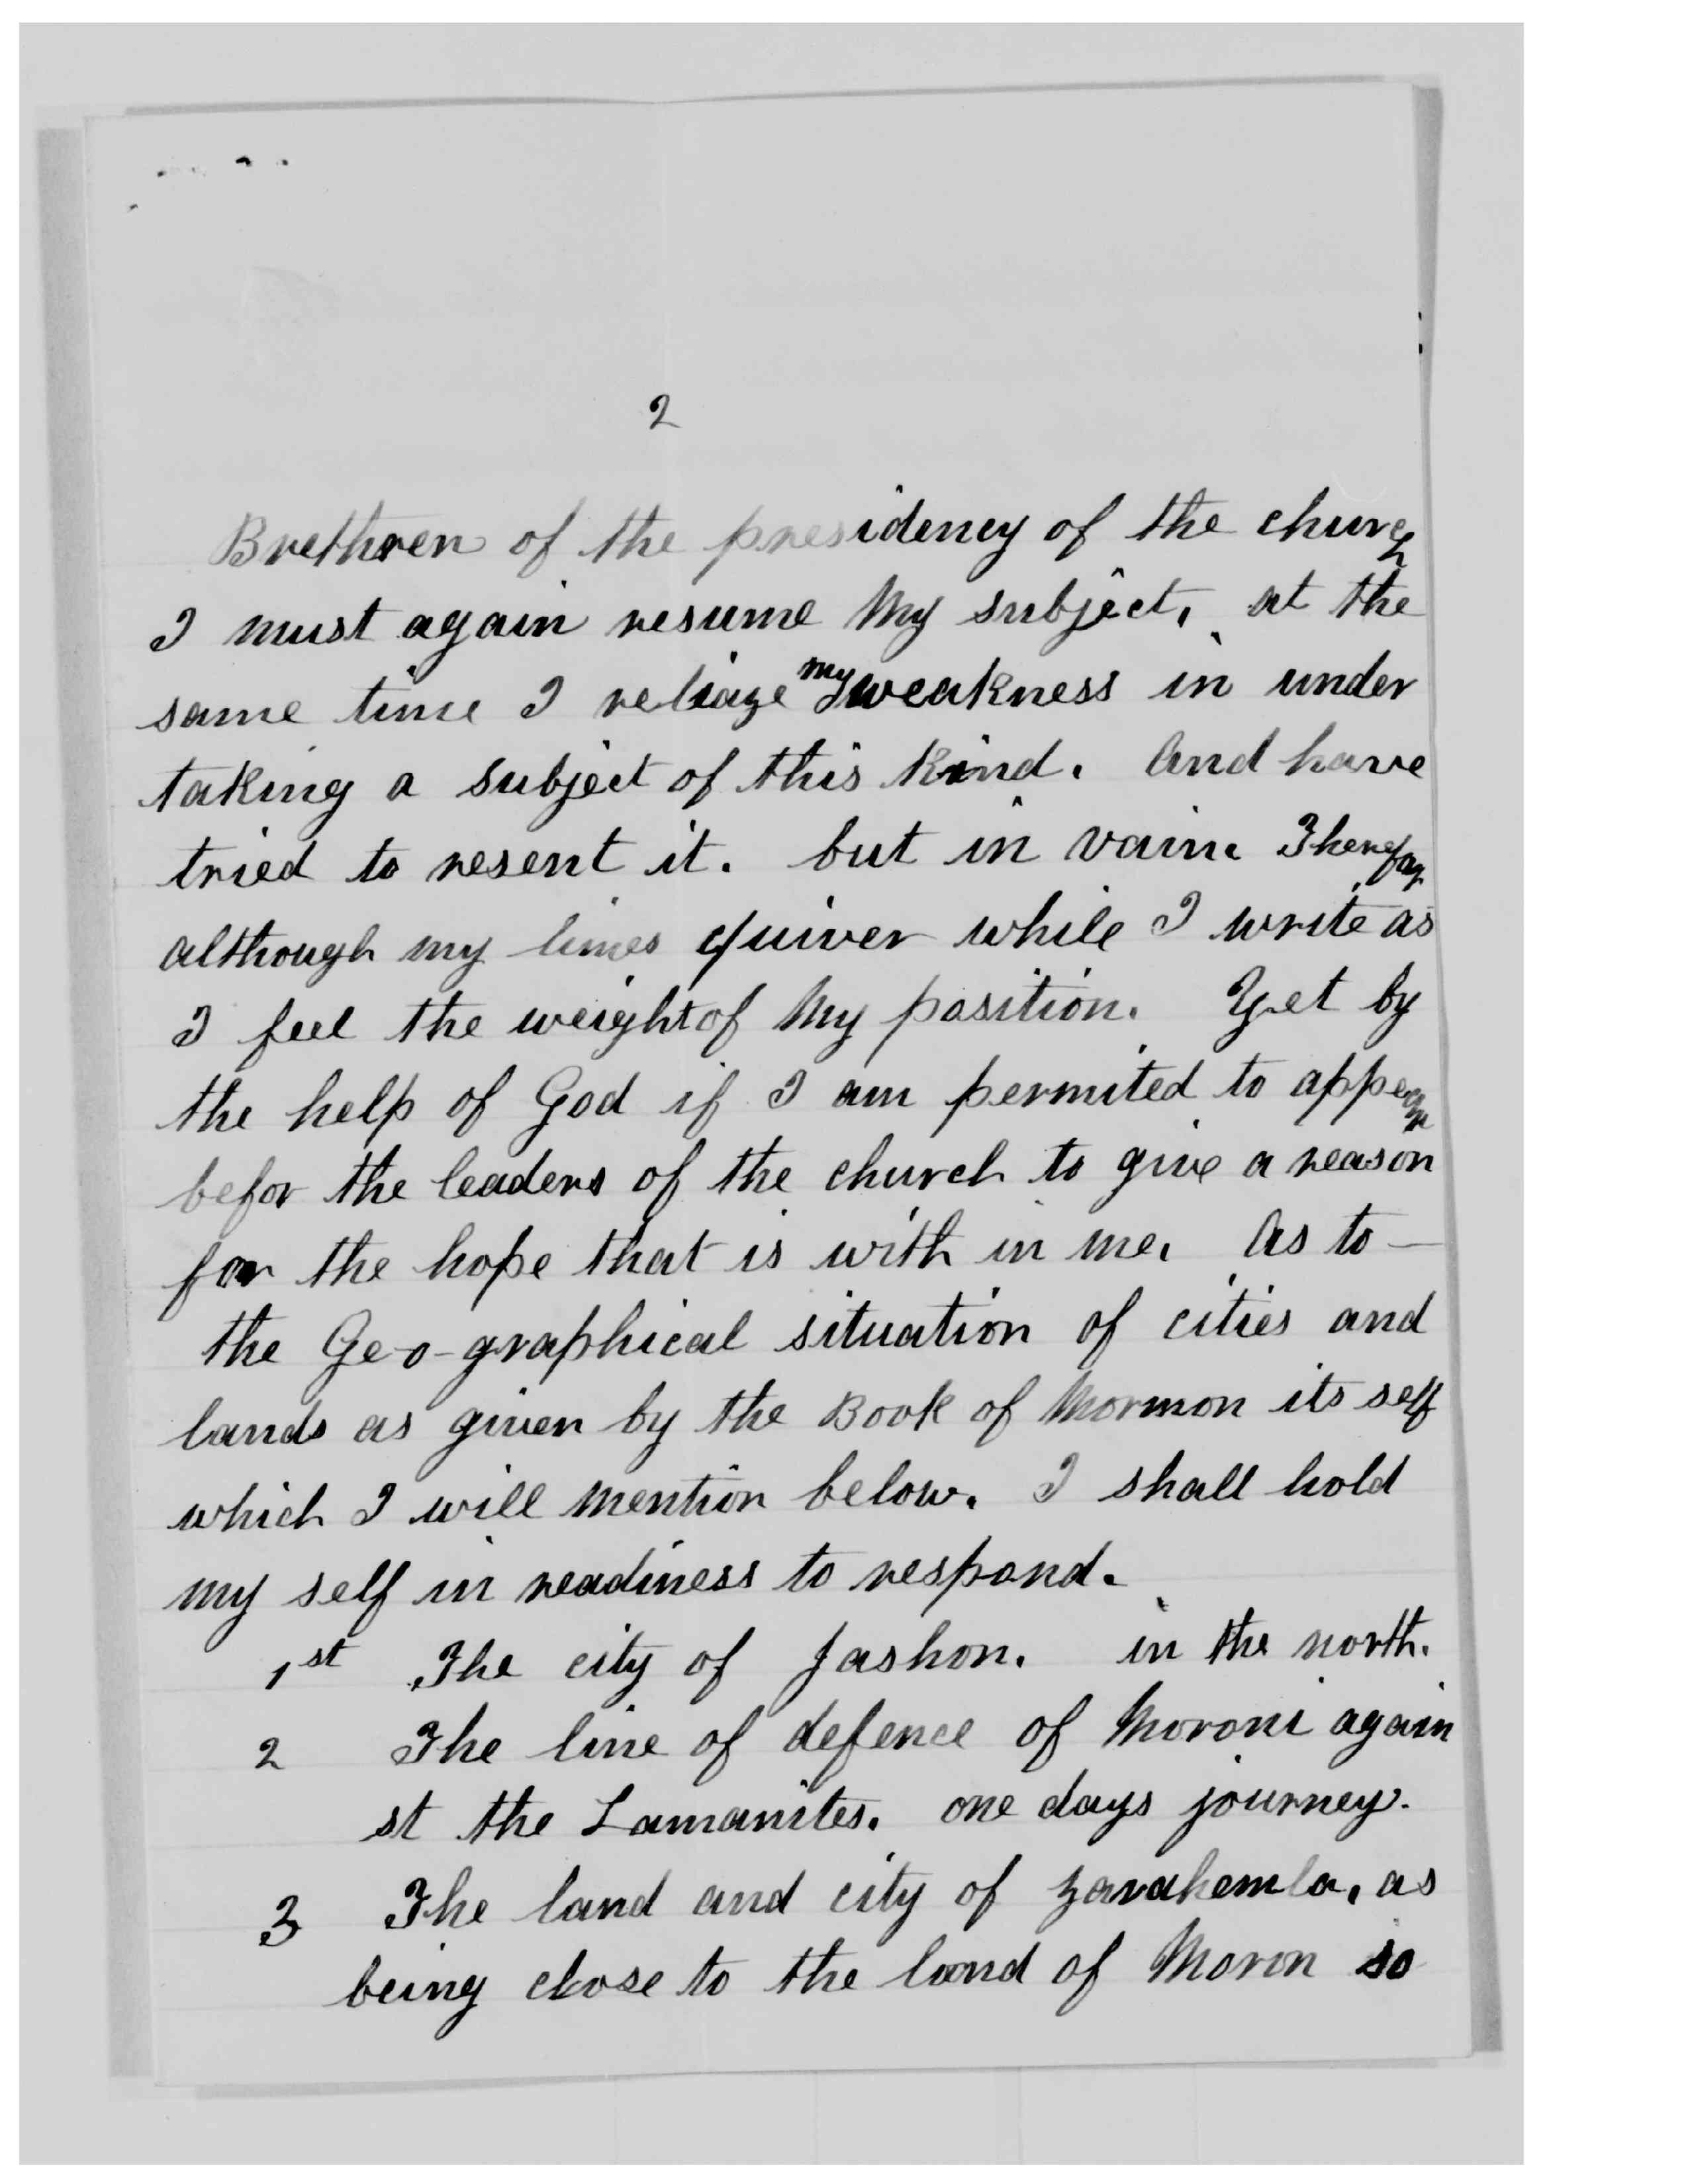 2
Brethren of the presidency of the church
I must again resume my subject, at the
same time I reliaze my weakness in under
taking a subject of this kind. And have
tried to resent it. but in vain. Therefor
although my limes quiver while I write as
I feel the weight of my position. Yet by
the help of God if I am permited to appear
befor the leaders of the church to give a reason
for the hope that is with in me. As to
the Ge-o-graphical situation of cities and
lands as given by the Book of Mormon its self
which I will mention below. I shall hold
my self in readiness to respond.
1st The city of Jashon. in the north.
2 The line of defence of Moroni again
st the Lamanites. one days journey.
3 The land and city of Zarahemla, as
being close to the land of Moron so